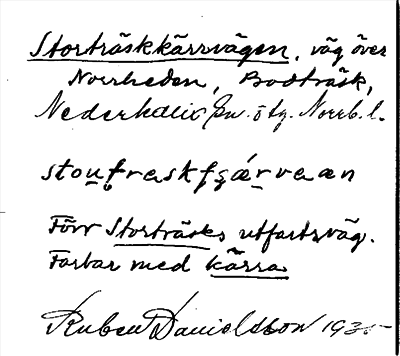 Storträskkärrvägen, väg över
Norrheden, Bodträsk,
Nederkalix sn. ö tg. Norrb. l.
Förr Storträsks utfartsväg.
Farbar med kärra
Ruben Danielsson 1935